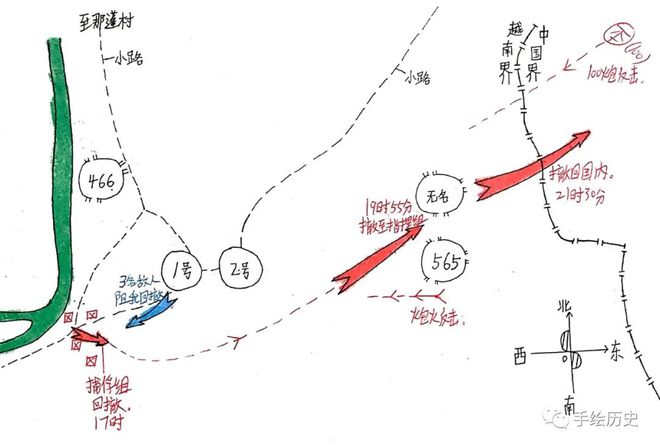 至那蓬村
小路
小路
越南界
中国界
100炮反击
466
1号
2号
无名
565
19时55分
撤至指挥组
撤回国内.
21时30分
3名敌人
阻我回撤
炮火反击.
捕俘组
回撤.
17时
北
西
东
南
手绘历史